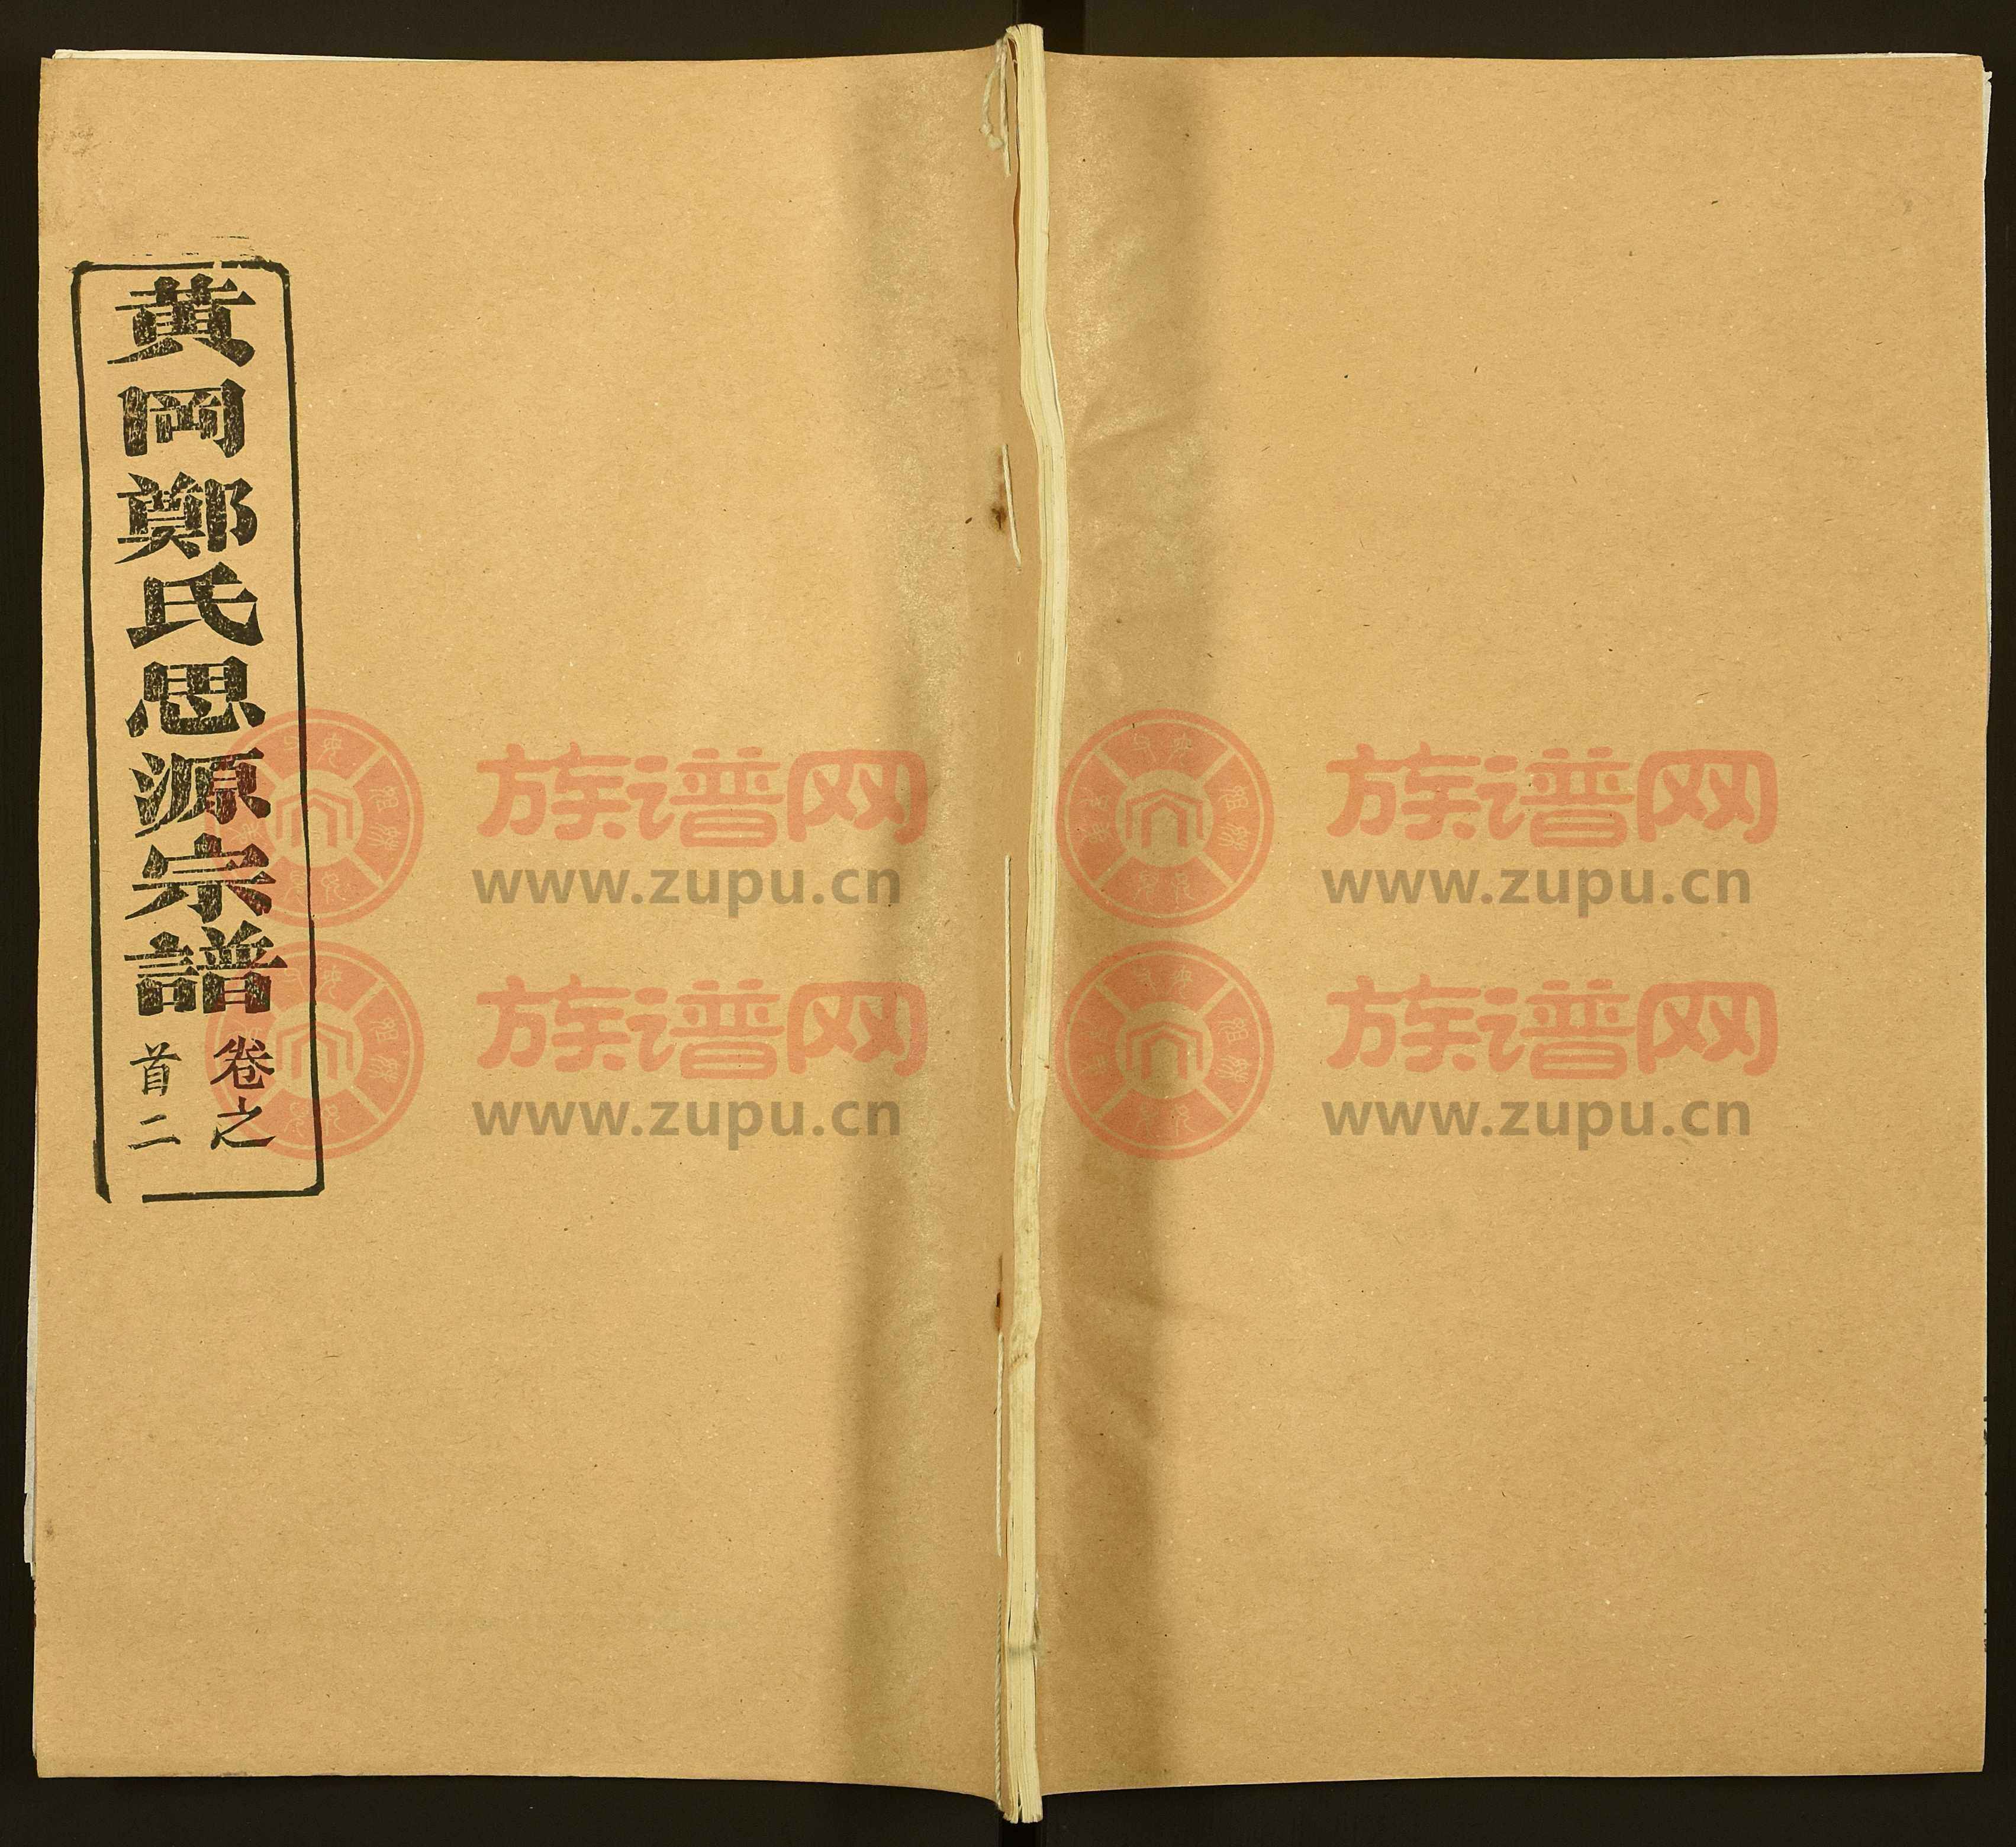 黄岡鄭氏思源宗譜
卷之
首二
族谱网
www.zupu.cn
族谱网
www.zupu.cn
族谱网
www.zupu.cn
族谱网
www.zupu.cn